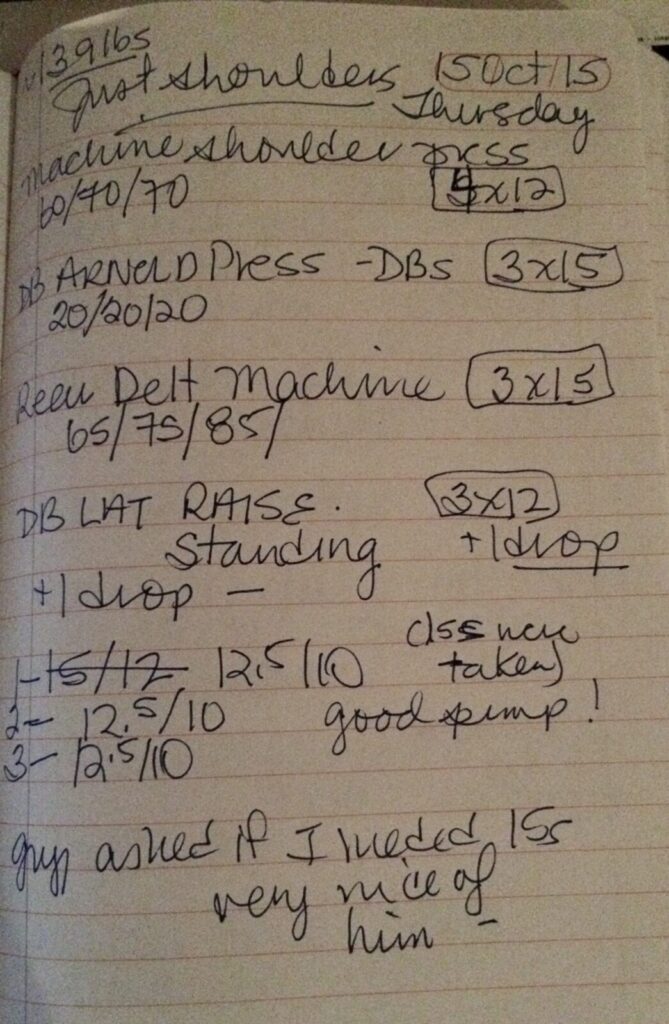 139lbs
Just shoulders 15 Oct/15
Thursday
machine shoulder press
60/70/70 4x12
DB ARNOLD Press - DBs 3x15
20/20/20
Rear Delt Machine 3x15
65/75/85/
DB LAT RAISE. 3x12
Standing +1 drop
+1 drop -
(15s were
1- 15/12 12.5/10 taken)
2- 12.5/10 good pump!
3- 12.5/10
guy asked if I needed 15s
very nice of
him -